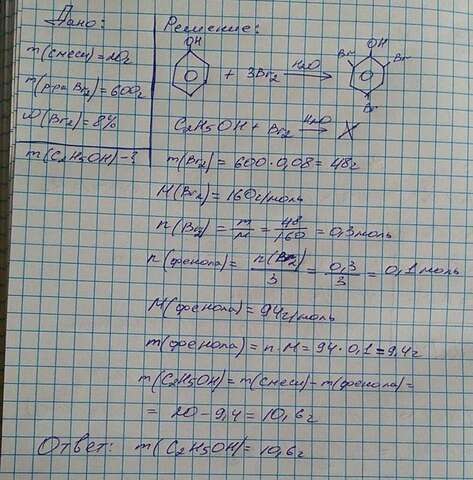 Дано:
m(смеси)=20г
m(р-ра Br2)=600г
ω(Br2)=8%
m(C2H5OH)-?
Решение:
OH
+ 3Br2 H2O
OH
Br Br
Br
C2H5OH + Br2 H2O
m(Br2) = 600·0,08=48г
M(Br2)=160г/моль
n(Br2) = m/M = 48/160 = 0,3моль
n(фенола)= n(Br2)/3 = 0,3/3 = 0,1моль
M(фенола)=94г/моль
m(фенола)=n·M=94·0,1=9,4г
m(C2H5OH)=m(смеси)-m(фенола)=
= 20-9,4=10,6г
Ответ: m(C2H5OH)=10,6г